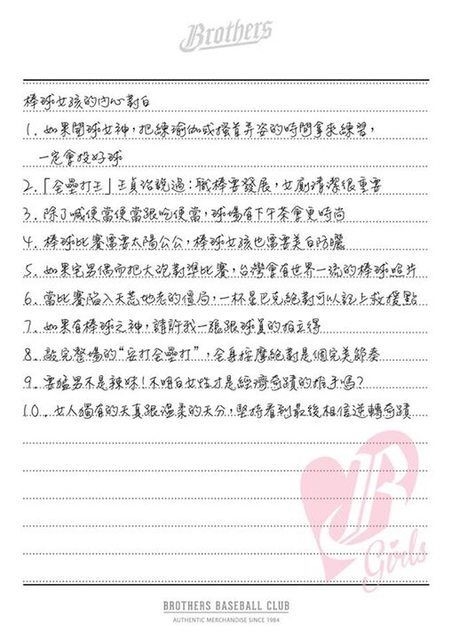 Brothers
棒球女孩的內心對白
1. 如果開球女神，把練瑜伽或搔首弄姿的時間拿來練習，
一定會投好球
2.「全壘打王」王貞治說過：職棒要發展，女廁清潔很重要
3. 除了喊便當便當跟吃便當，球場有下午茶會更時尚
4. 棒球比賽需要太陽公公，棒球女孩也需要美白防曬
5. 如果宅男偶而把大砲對準比賽，台灣會有世界一流的棒球照片
6. 當比賽陷入天荒地老的僵局，一杯星巴克絕對可以記上救援點
7. 如果有棒球之神，請許我一張跟球員的拍立得
8. 敲完聲場的“安打全壘打”，全身按摩絕對是個完美節奏
9. 要猛男不是辣妹!不明白女性才是經濟奇蹟的推手嗎?
10. 女人獨有的天真跟溫柔的天分，堅持看到最後相信逆轉奇蹟
B
Girls
BROTHERS BASEBALL CLUB
AUTHENTIC MERCHANDISE SINCE 1984